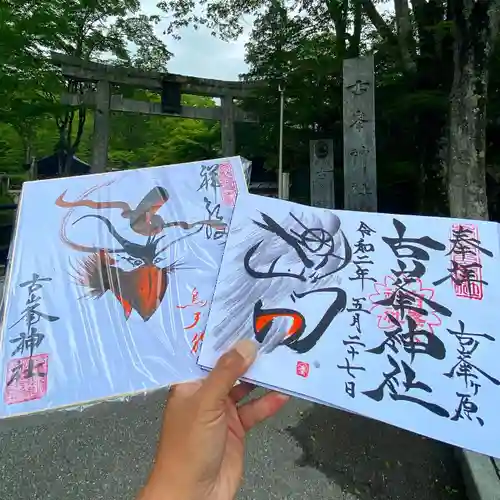 古峯神社
奉拝
古峯ヶ原
古峯神社
令和二年五月二十七日
古峯神社